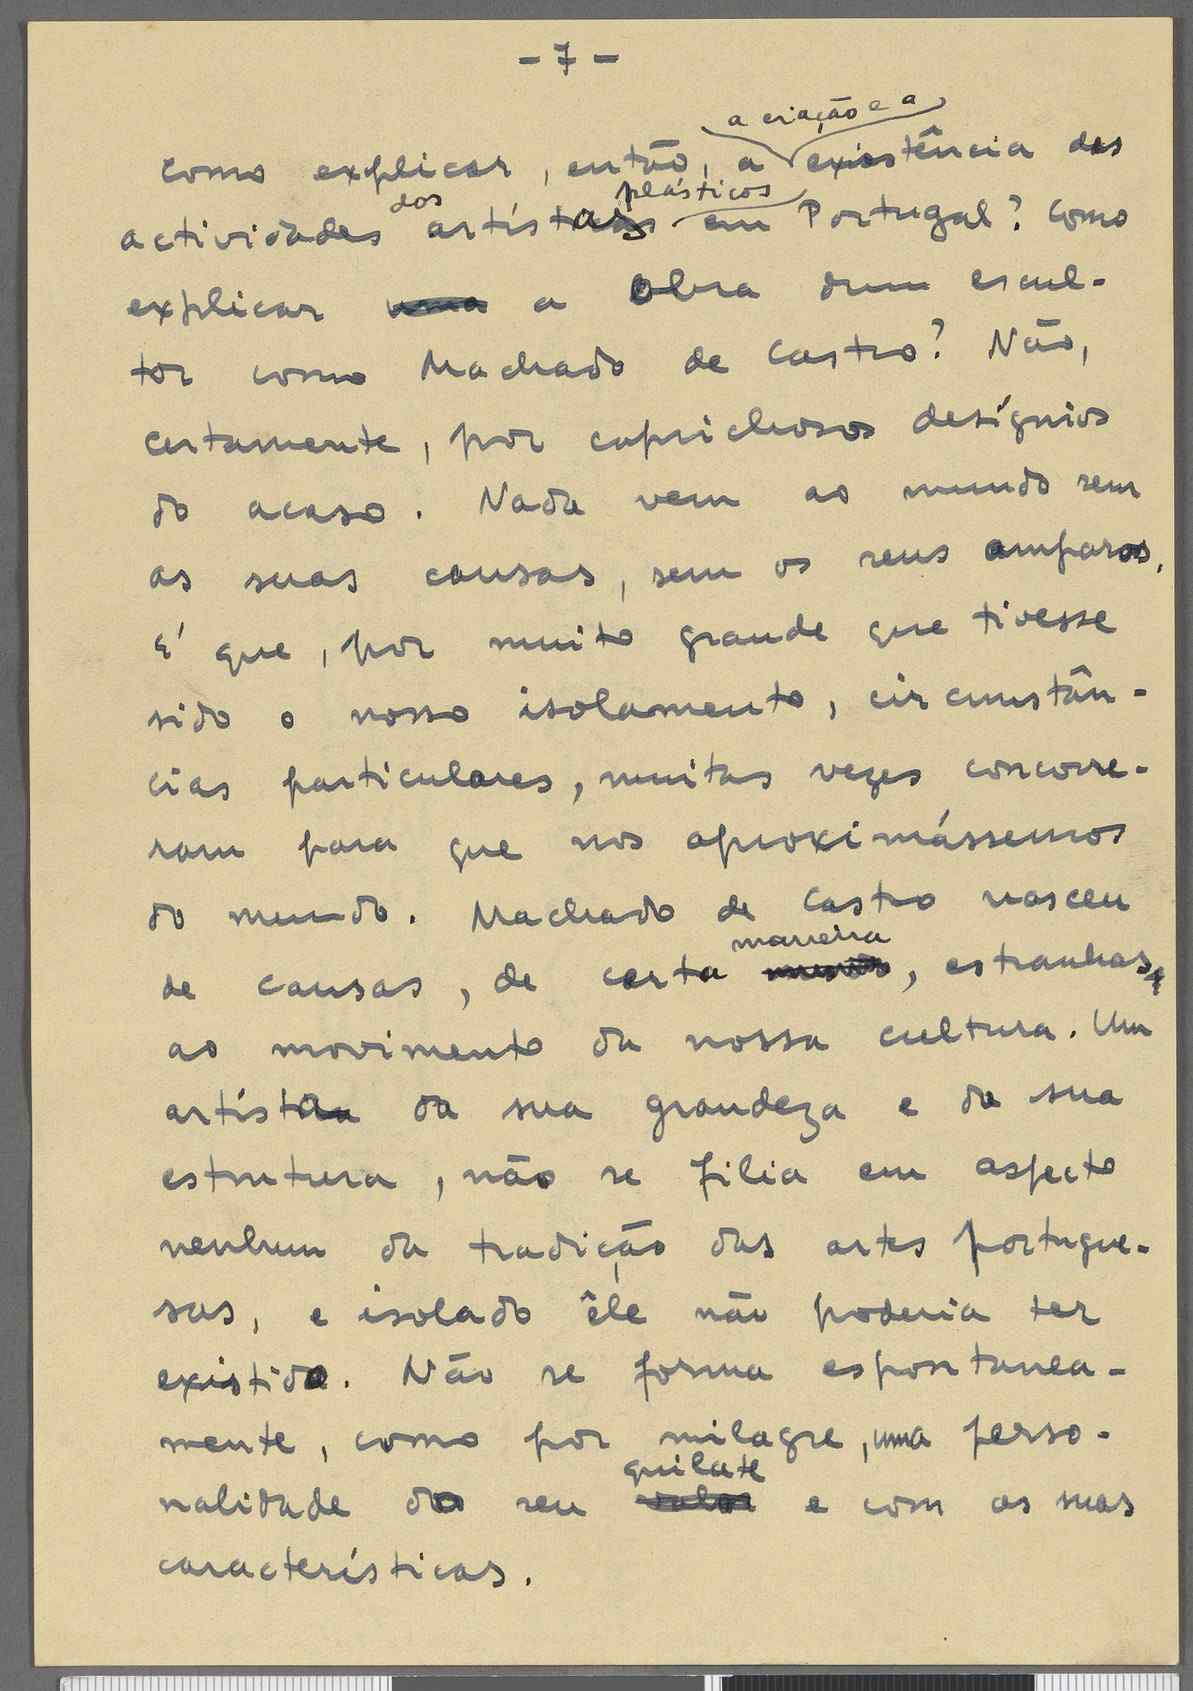 - 7 -
a criação e a
Como explicar, então, a existência das
dos plásticos
actividades artístas em Portugal? Como
explicar uma a obra dum escul-
tor como Machado de Castro? Não,
certamente, por caprichosos desígnios
do acaso. Nada vem ao mundo sem
as suas causas, sem os seus amparos.
É que, por muito grande que tivesse
sido o nosso isolamento, circunstân-
cias particulares, muitas vezes concorre-
ram para que nos aproximássemos
do mundo. Machado de Castro nasceu
maneira
de causas, de certa, estranhas,
ao movimento da nossa cultura. Um
artísta da sua grandeza e da sua
estrutura, não se filia em aspecto
nenhum da tradição das artes portugue-
sas, e isolado êle não poderia ter
existido. Não se forma espontanea-
mente, como por milagre, uma perso-
quilate
nalidade do seu valor e com as suas
características.